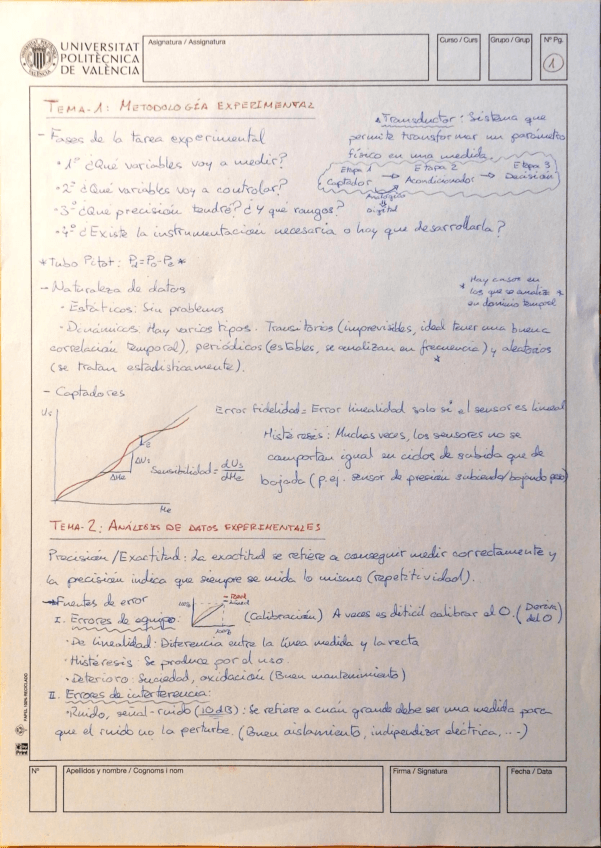 UNIVERSITAT
POLITÈCNICA
DE VALÈNCIA
Asignatura / Assignatura
Curso / Curs
Grupo / Grup
Nº Pg.
1
TEMA-1: METODOLOGÍA EXPERIMENTAL
Transductor: Sistema que
permite transformar un parámetro
físico en una medida.
Etapa 1 Etapa 2 Etapa 3
Captador → Acondicionador → Decisión
Analógico
Digital
- Fases de la tarea experimental
• 1º ¿Qué variables voy a medir?
• 2º ¿Qué variables voy a controlar?
• 3º ¿Que precisión tendré? ¿Y qué rangos?
• 4º ¿Existe la instrumentación necesaria o hay que desarrollarla?
* Tubo Pitot:
- Naturaleza de datos
* Hay casos en
los que se analiza *
en dominio temporal
• Estáticos: Sin problemas
• Dinámicos. Hay varios tipos. Transitorios (imprevisibles, ideal tener una buena
correlación temporal), periódicos (estables, se analizan en frecuencia) y aleatorios
*
(se tratan estadísticamente).
- Captadores
Us
ΔUs
ΔMe
Me
Sensibilidad = dUs/dMe
Error fidelidad = Error linealidad solo si el sensor es lineal
Histéresis: Muchas veces, los sensores no se
comportan igual en ciclos de subida que de
bajada (p.ej. sensor de presión subiendo/bajando peso)
TEMA-2: ANÁLISIS DE DATOS EXPERIMENTALES
Precisión/Exactitud: La exactitud se refiere a conseguir medir correctamente y
la precisión indica que siempre se mida lo mismo (repetitividad).
→ Fuentes de error
I. Errores de equipo: (Calibración) A veces es difícil calibrar el 0. (Deriva del 0)
• De linealidad: Diferencia entre la línea medida y la recta
• Histéresis: Se produce por el uso.
• Deterioro: Suciedad, oxidación (Buen mantenimiento)
II. Errores de interferencia:
• Ruido, señal-ruido (10 dB): Se refiere a cuán grande debe ser una medida para
que el ruido no la perturbe. (Buen aislamiento, independizar eléctrica, ...)
PAPEL 100% RECICLADO
Nº
Apellidos y nombre / Cognoms i nom
Firma / Signatura
Fecha / Data